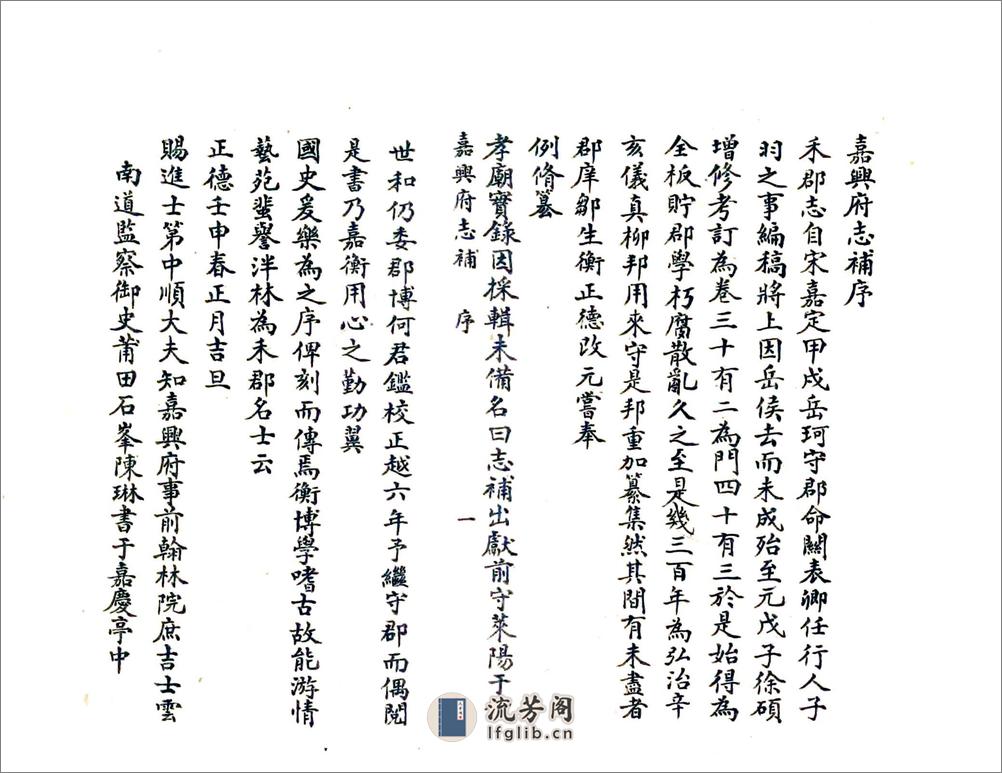 嘉興府志補序
禾郡志自宋嘉定甲戌岳珂守郡命關表卿任行人子
羽之事編稿將上因岳侯去而未成殆至元戊子徐碩
增修考訂為卷三十有二為門四十有三於是始得為
全板貯郡學朽腐散亂久之至是幾三百年為弘治辛
亥儀真柳邦用來守是邦重加纂集然其間有未盡者
郡庠鄒生衡正德改元嘗奉
例脩纂
孝廟實錄因採輯未備名曰志補出獻前守萊陽于
嘉興府志補 序 一
世和仍委郡博何君鑑校正越六年予繼守郡而偶閱
是書乃嘉衡用心之勤功翼
國史爰樂為之序俾刻而傳焉衡博學嗜古故能游情
藝苑蜚譽泮林為禾郡名士云
正德壬申春正月吉旦
賜進士第中順大夫知嘉興府事前翰林院庶吉士雲
南道監察御史莆田石峯陳琳書于嘉慶亭中
流芳阁
lfglib.cn